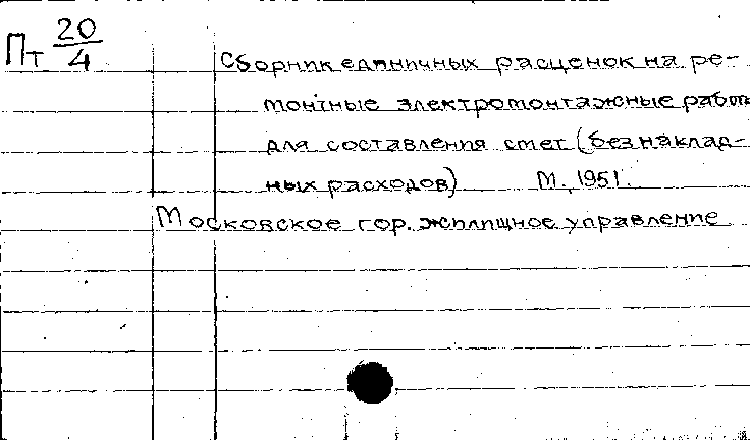 Пт 20/4
Сборник единичных расценок на ре-
монтные электромонтажные работы
для составления смет (без наклад-
ных расходов) М., 1951.
Московское гор. жилищное управление